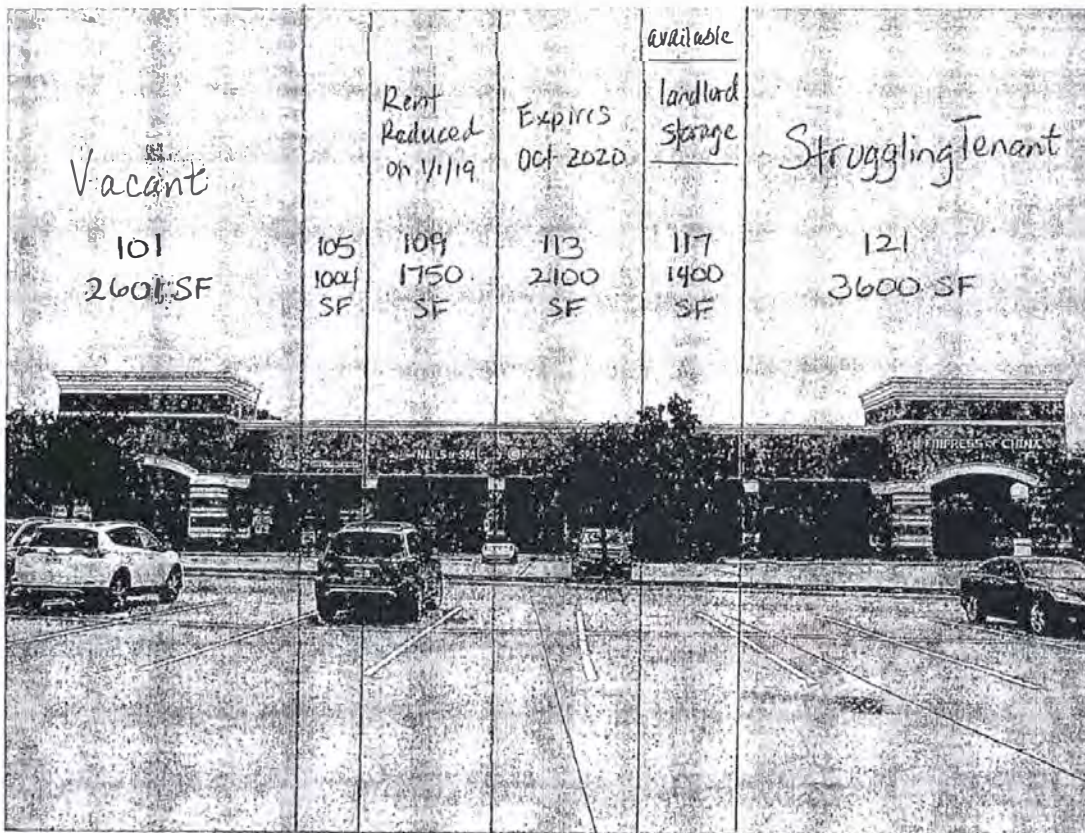 Vacant
101
2601 SF
105
1004
SF
Rent
Reduced
on 1/1/19
109
1750
SF
Expires
Oct 2020
113
2100
SF
available
landlord
storage
117
1400
SF
Struggling Tenant
121
3600 SF
NAILS & SPA
EMPRESS OF CHINA